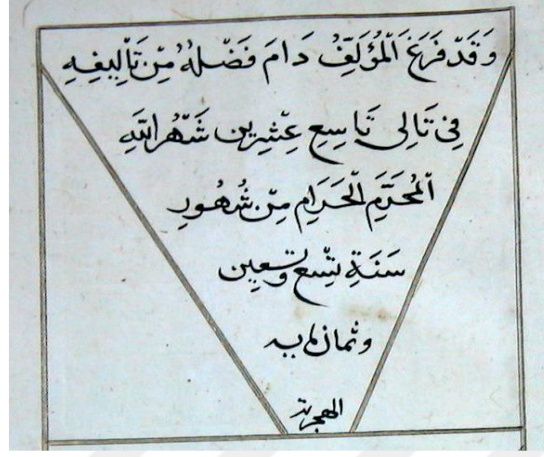 وَقَدْ فَرَغَ الْمُؤَلِّفُ دَامَ فَضْلُهُ مِنْ تَأْلِيفِهِ
فِى تَالِى تَاسِعِ عِشْرِين شَهْرِ اللَّهِ
الْمُحَرَّمِ الْحَرَامِ مِنْ شُهُورِ
سَنَةِ تِسْعٍ وتسعِين
وثمان مايه
الهجرية